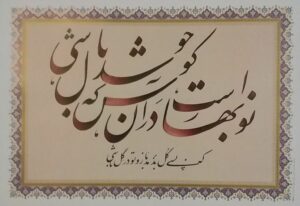 نوبهار است در آن کوش که خوشدل باشی
که بسی گل بدمد باز و تو در گل باشی